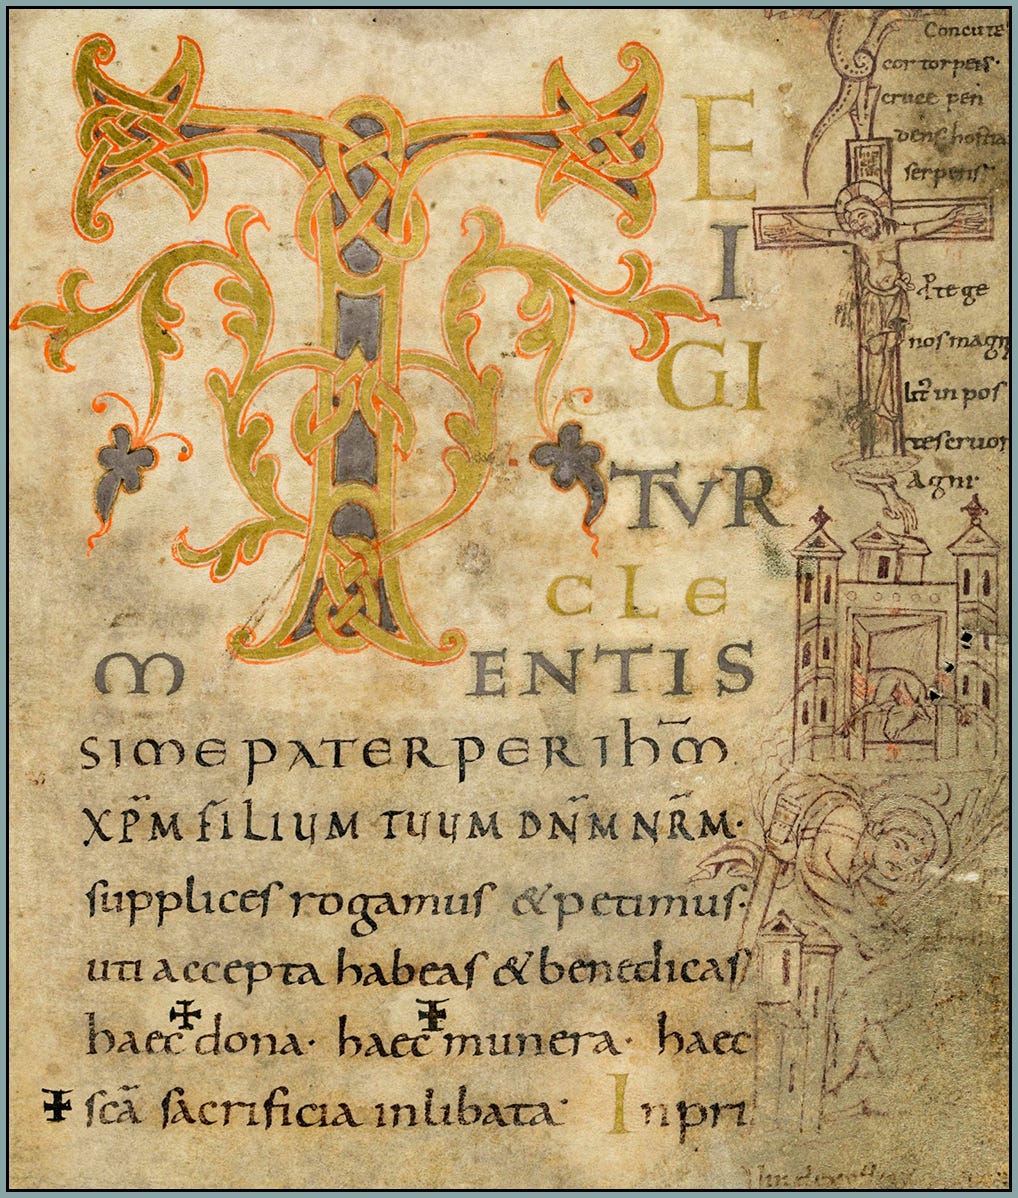 TE
I
GI
TVR
CLE
M ENTIS
SIMEPATERPERIHM̄
XP̄M FILIUM TUUM DN̄M NR̄M·
supplices rogamus & petimus·
uti accepta habeas & benedicas
haec ✠ dona· haec ✠ munera· haec
✠ sc̄a sacrificia inlibata· Inpri
Concute
cor torpens·
cruce pen
dens hostia
serpens
nos magn
in pos
Agni·